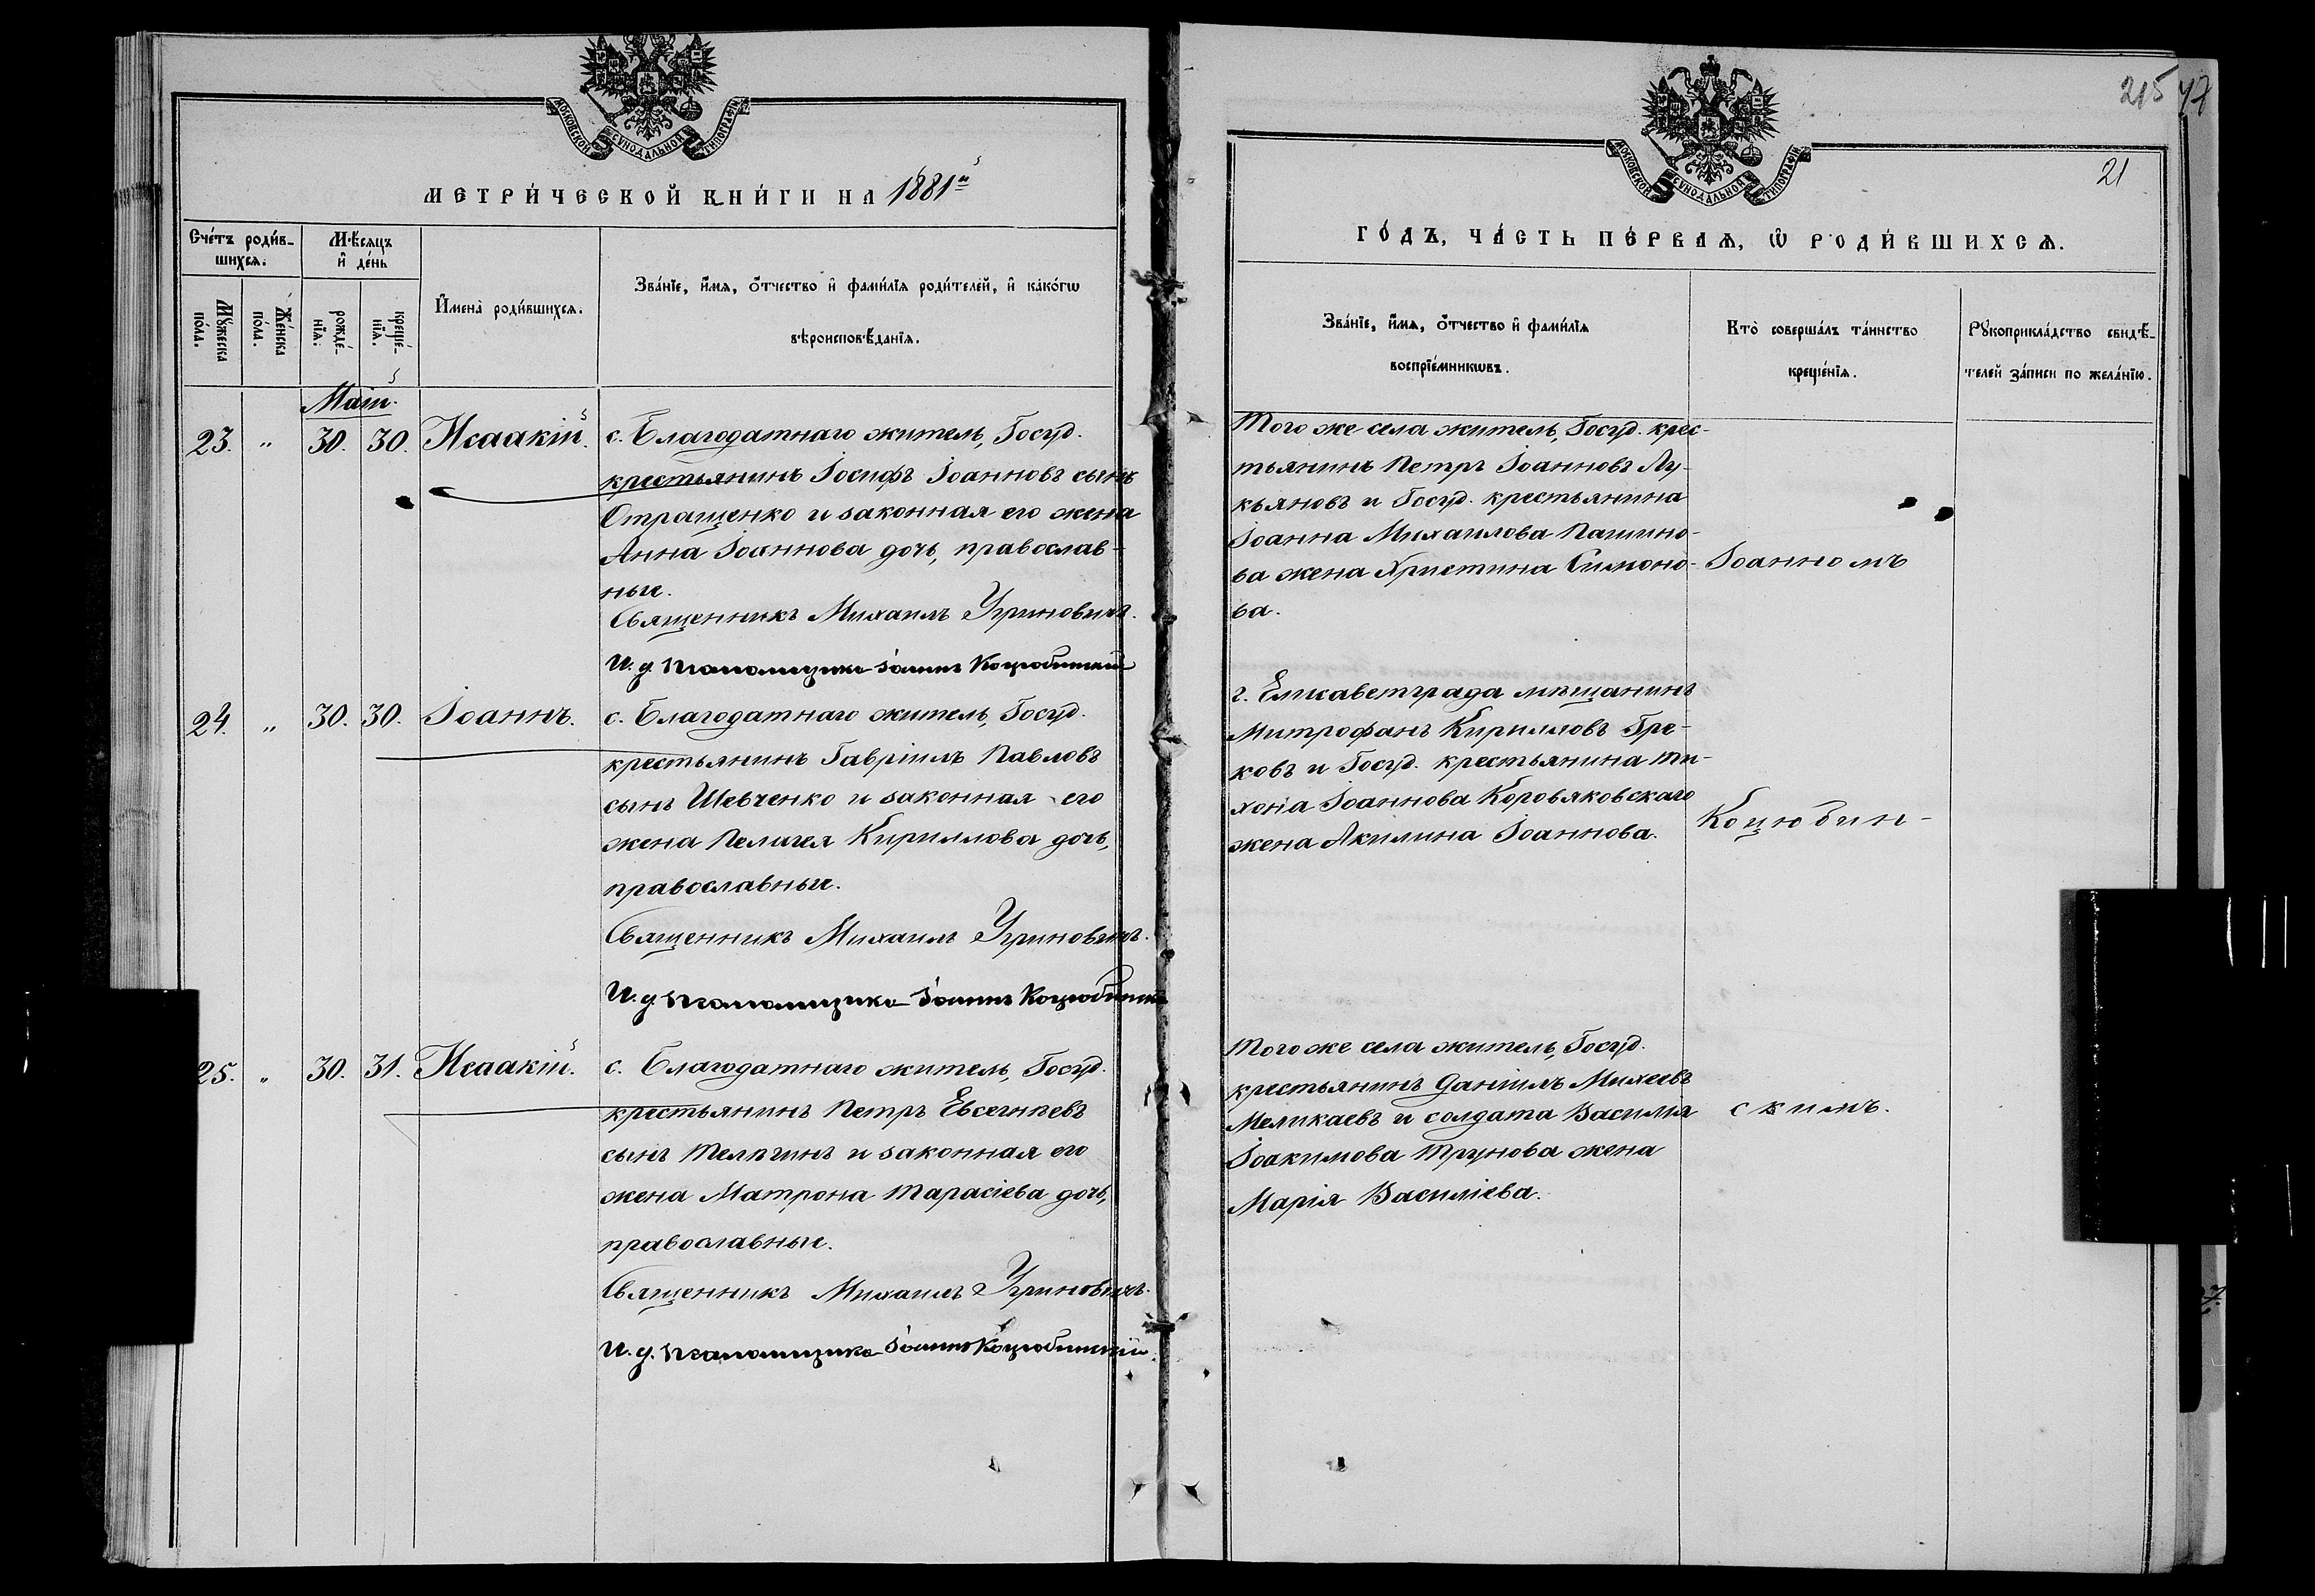 МОСКОВСКОЙ СѴНОДАЛЬНОЙ ТИПОГРАФІИ
МЕТРИ́ЧЕСКОЙ КНИ́ГИ НА 1881й
Сче́тъ роди́в-
шихся.
Мѣ́сяцъ
и҆ де́нь
Мꙋ́жеска
по́ла.
Же́нска
по́ла.
рожде́-
нїя.
креще́-
нїя.
И҆мена̀ роди́вшихся.
Зва́нїе, и҆́мя, ѻ҆́тчество и҆ фами́лїя роди́телей, и҆ како́гѡ
вѣроисповѣ́данїя.
Май.
23. " 30. 30. Исаакій. с. Благодатнаго житель, Госуд.
крестьянинъ Іосифъ Іоанновъ сынъ
Отращенко и законная его жена
Анна Іоаннова дочь, православ-
ные.
Священникъ Михаилъ Угриновичъ.
И. д. псаломщика Іоаннъ Коцюбинскій
24. " 30. 30. Іоаннъ. с. Благодатнаго житель, Госуд.
крестьянинъ Гавріилъ Павловъ
сынъ Шевченко и законная его
жена Пелагея Кириллова дочь,
православные.
Священникъ Михаилъ Угриновичъ.
И. д. псаломщика Іоаннъ Коцюбинскій
25. " 30. 31. Исаакій. с. Благодатнаго житель, Госуд.
крестьянинъ Петръ Евсегнѣевъ
сынъ Телѣгинъ и законная его
жена Матрона Тарасіева дочь,
православные.
Священникъ Михаилъ Угриновичъ.
И. д. псаломщика Іоаннъ Коцюбинскій.
215 47
21
МОСКОВСКОЙ СѴНОДАЛЬНОЙ ТИПОГРАФІИ
ГО́ДЪ, ЧА́СТЬ ПЕ́РВАЯ, Ѡ҆ РОДИ́ВШИХСЯ.
Зва́нїе, и҆́мя, ѻ҆́тчество и҆ фами́лїя
воспрїе́мникѡвъ.
Кто̀ соверша́лъ та́инство
креще́нїя.
Рꙋкоприкла́дство свидѣ́-
телей за́писи по жела́нїю.
Того же села житель, Госуд. крес-
тьянинъ Петръ Іоанновъ Лу-
кьяновъ и Госуд. крестьянина
Іоанна Михаилова Пашино-
ва жена Христина Симоно-
ва.
Іоанномъ
г. Елисаветграда мѣщанинъ
Митрофанъ Кирилловъ Гре-
ковъ и Госуд. крестьянина Ти-
хона Іоаннова Коровяковскаго
жена Акилина Іоаннова.
Коцюбин-
Того же села житель, Госуд.
крестьянинъ Даніилъ Михеевъ
Меликаевъ и солдата Василія
Іоакимова Трунова жена
Марія Василіева.
скимъ.